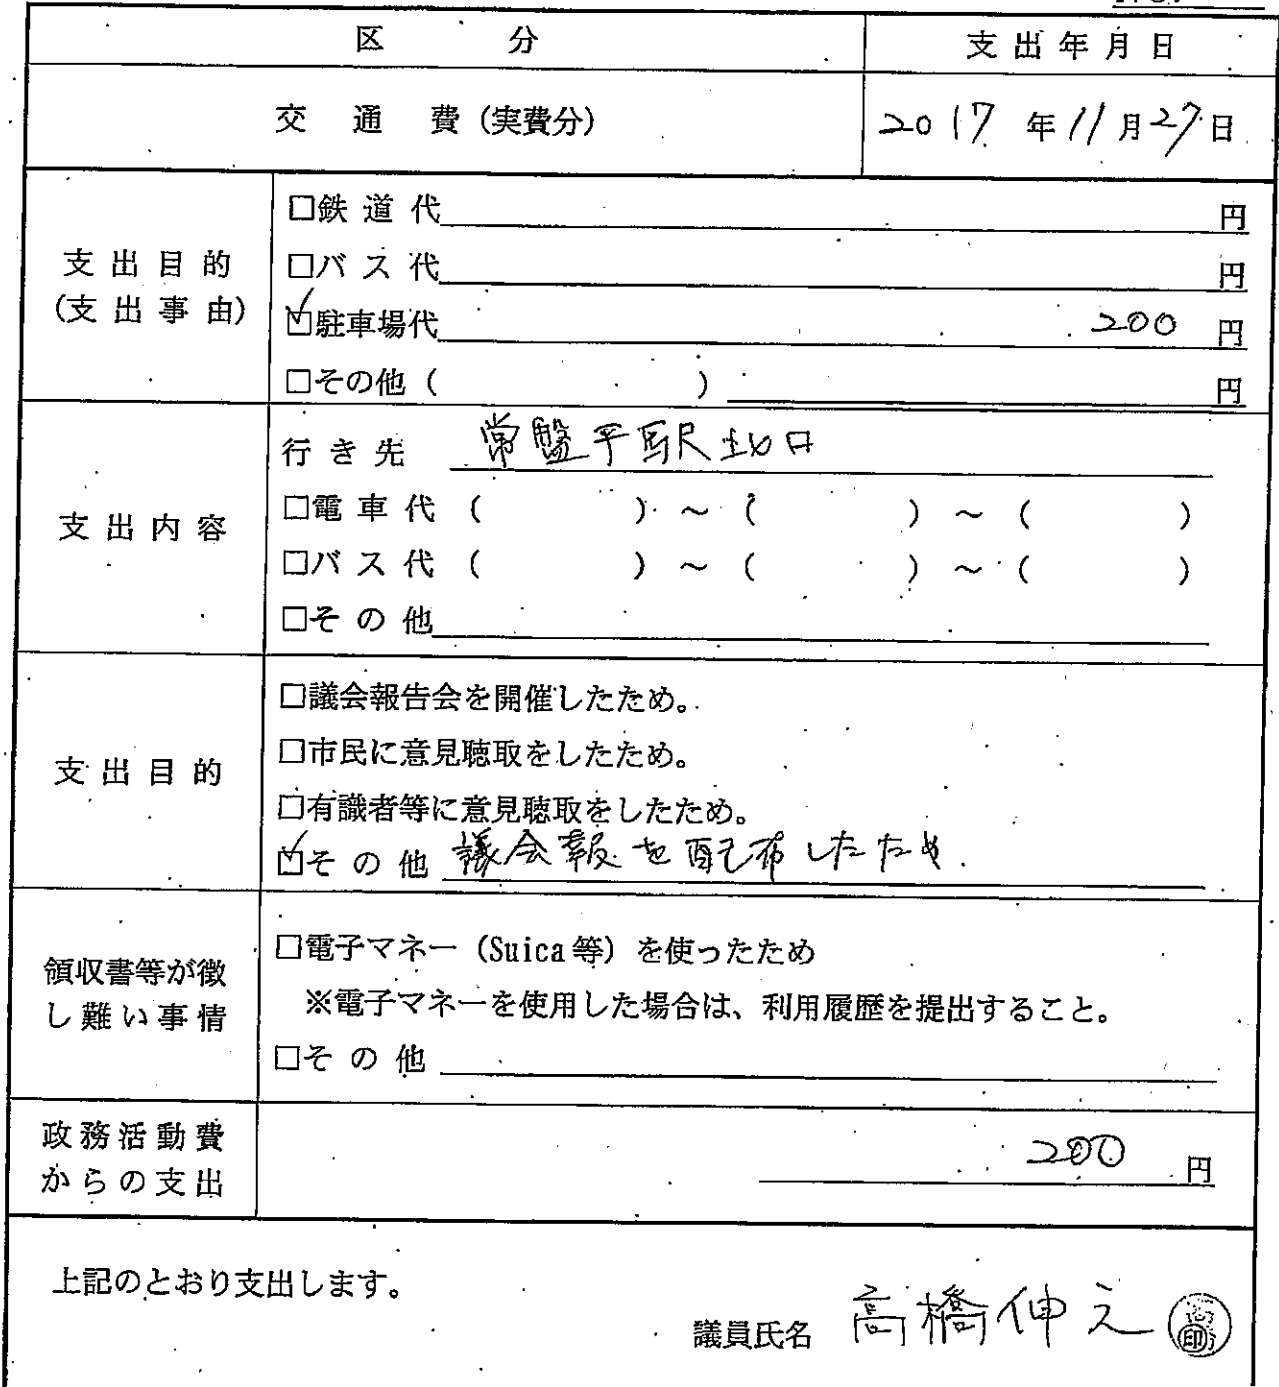 区 分 支出年月日
交 通 費（実費分） 2017 年 11 月 27 日
支出目的
（支出事由）
□鉄道代 円
□バス代 円
☑駐車場代 200 円
□その他（ ） 円
支出内容
行き先 常盤平駅北口
□電車代（ ）～（ ）～（ ）
□バス代（ ）～（ ）～（ ）
□その他
支出目的
□議会報告会を開催したため。
□市民に意見聴取をしたため。
□有識者等に意見聴取をしたため。
☑その他 議会報を配布したため.
領収書等が徴
し難い事情
□電子マネー（Suica等）を使ったため
※電子マネーを使用した場合は、利用履歴を提出すること。
□その他
政務活動費
からの支出
200 円
上記のとおり支出します。
議員氏名 高橋伸之 印